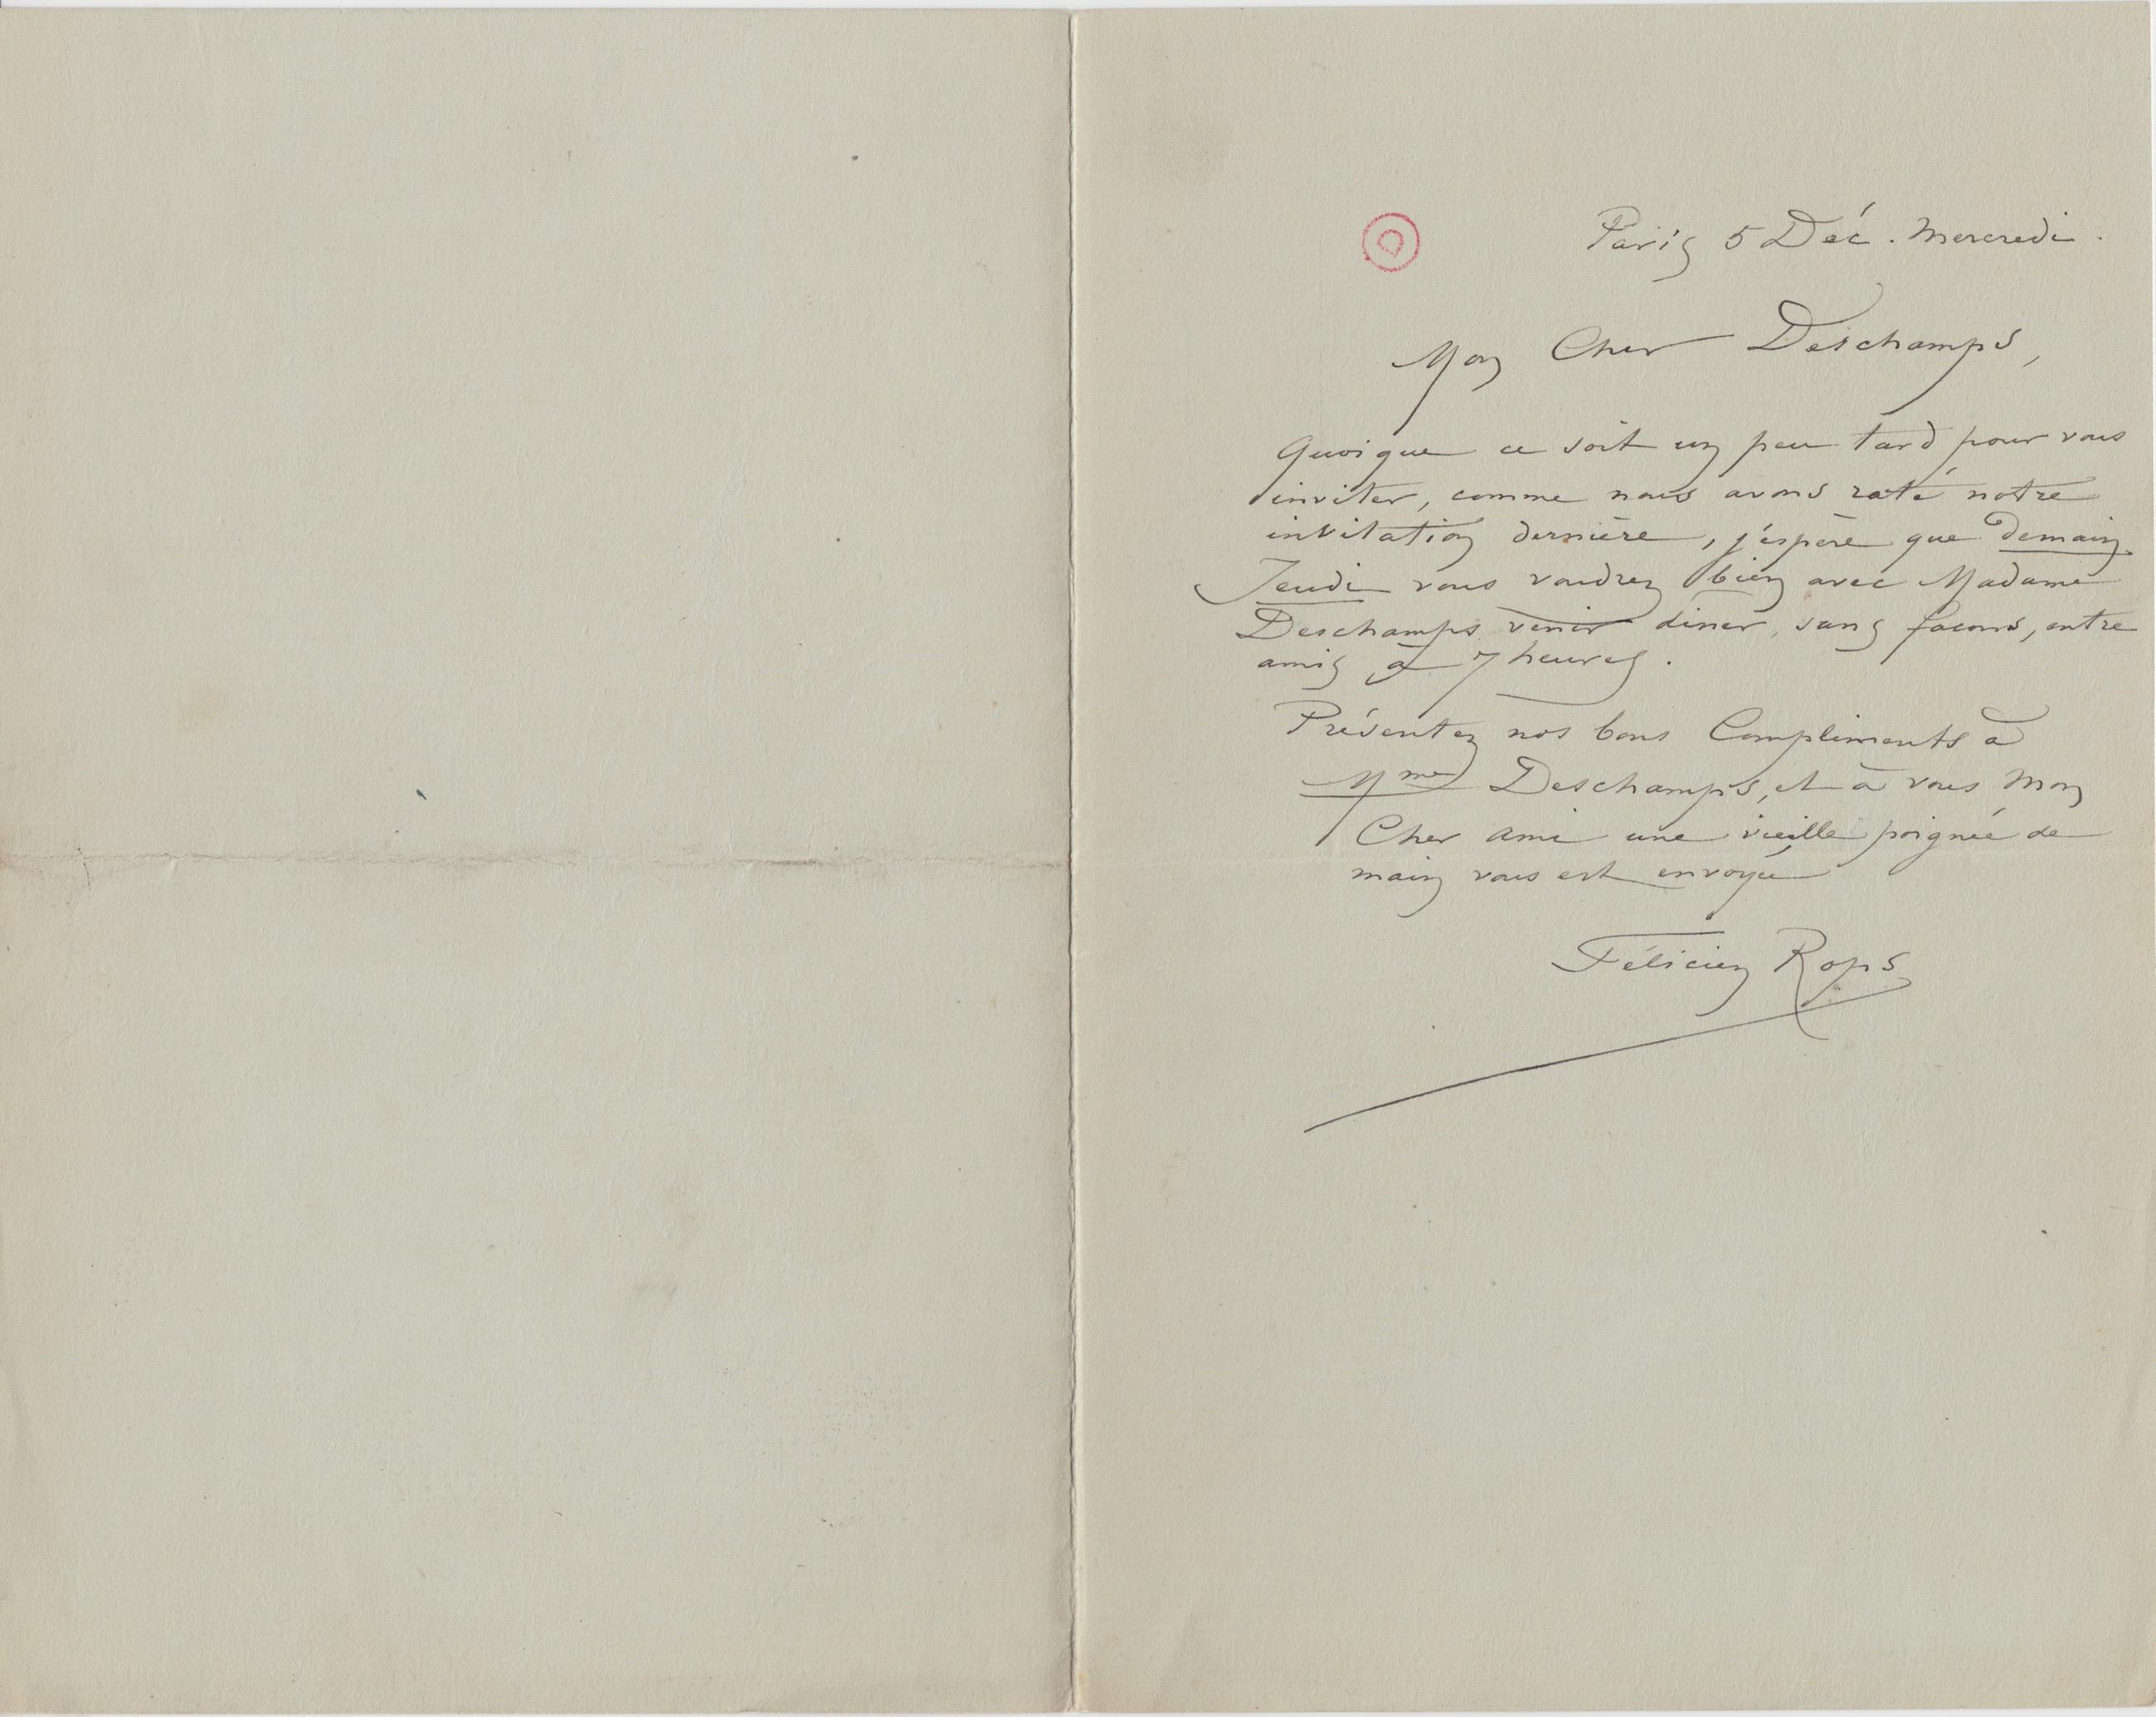 D
Paris 5 Déc. Mercredi.
Mon Cher Deschamps,
Quoique ce soit un peu tard pour vous
inviter, comme nous avons raté notre
invitation dernière, j'espère que demain
Jeudi vous voudrez bien avec Madame
Deschamps venir diner, sans facons, entre
amis à 7 heures.
Présentez nos bons Compliments à
Mme Deschamps, et à vous Mon
Cher ami une vieille poignée de
main vous est envoyée
Félicien Rops